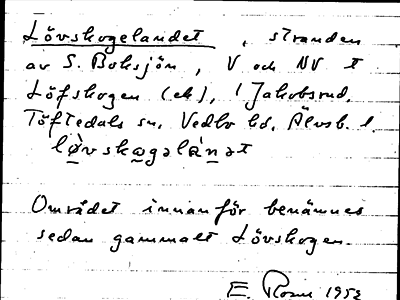 Lövskogelandet, stranden
av S. Boksjön, V och NV t
Löfskogen (ek), 1 Jakobsrud,
Töftedals sn, Vedbo hd, Älvsb. l.
lø̀vskagəlán̲ət
Området innanför benämnes
sedan gammalt Lövskogen.
E. Rosen 1952